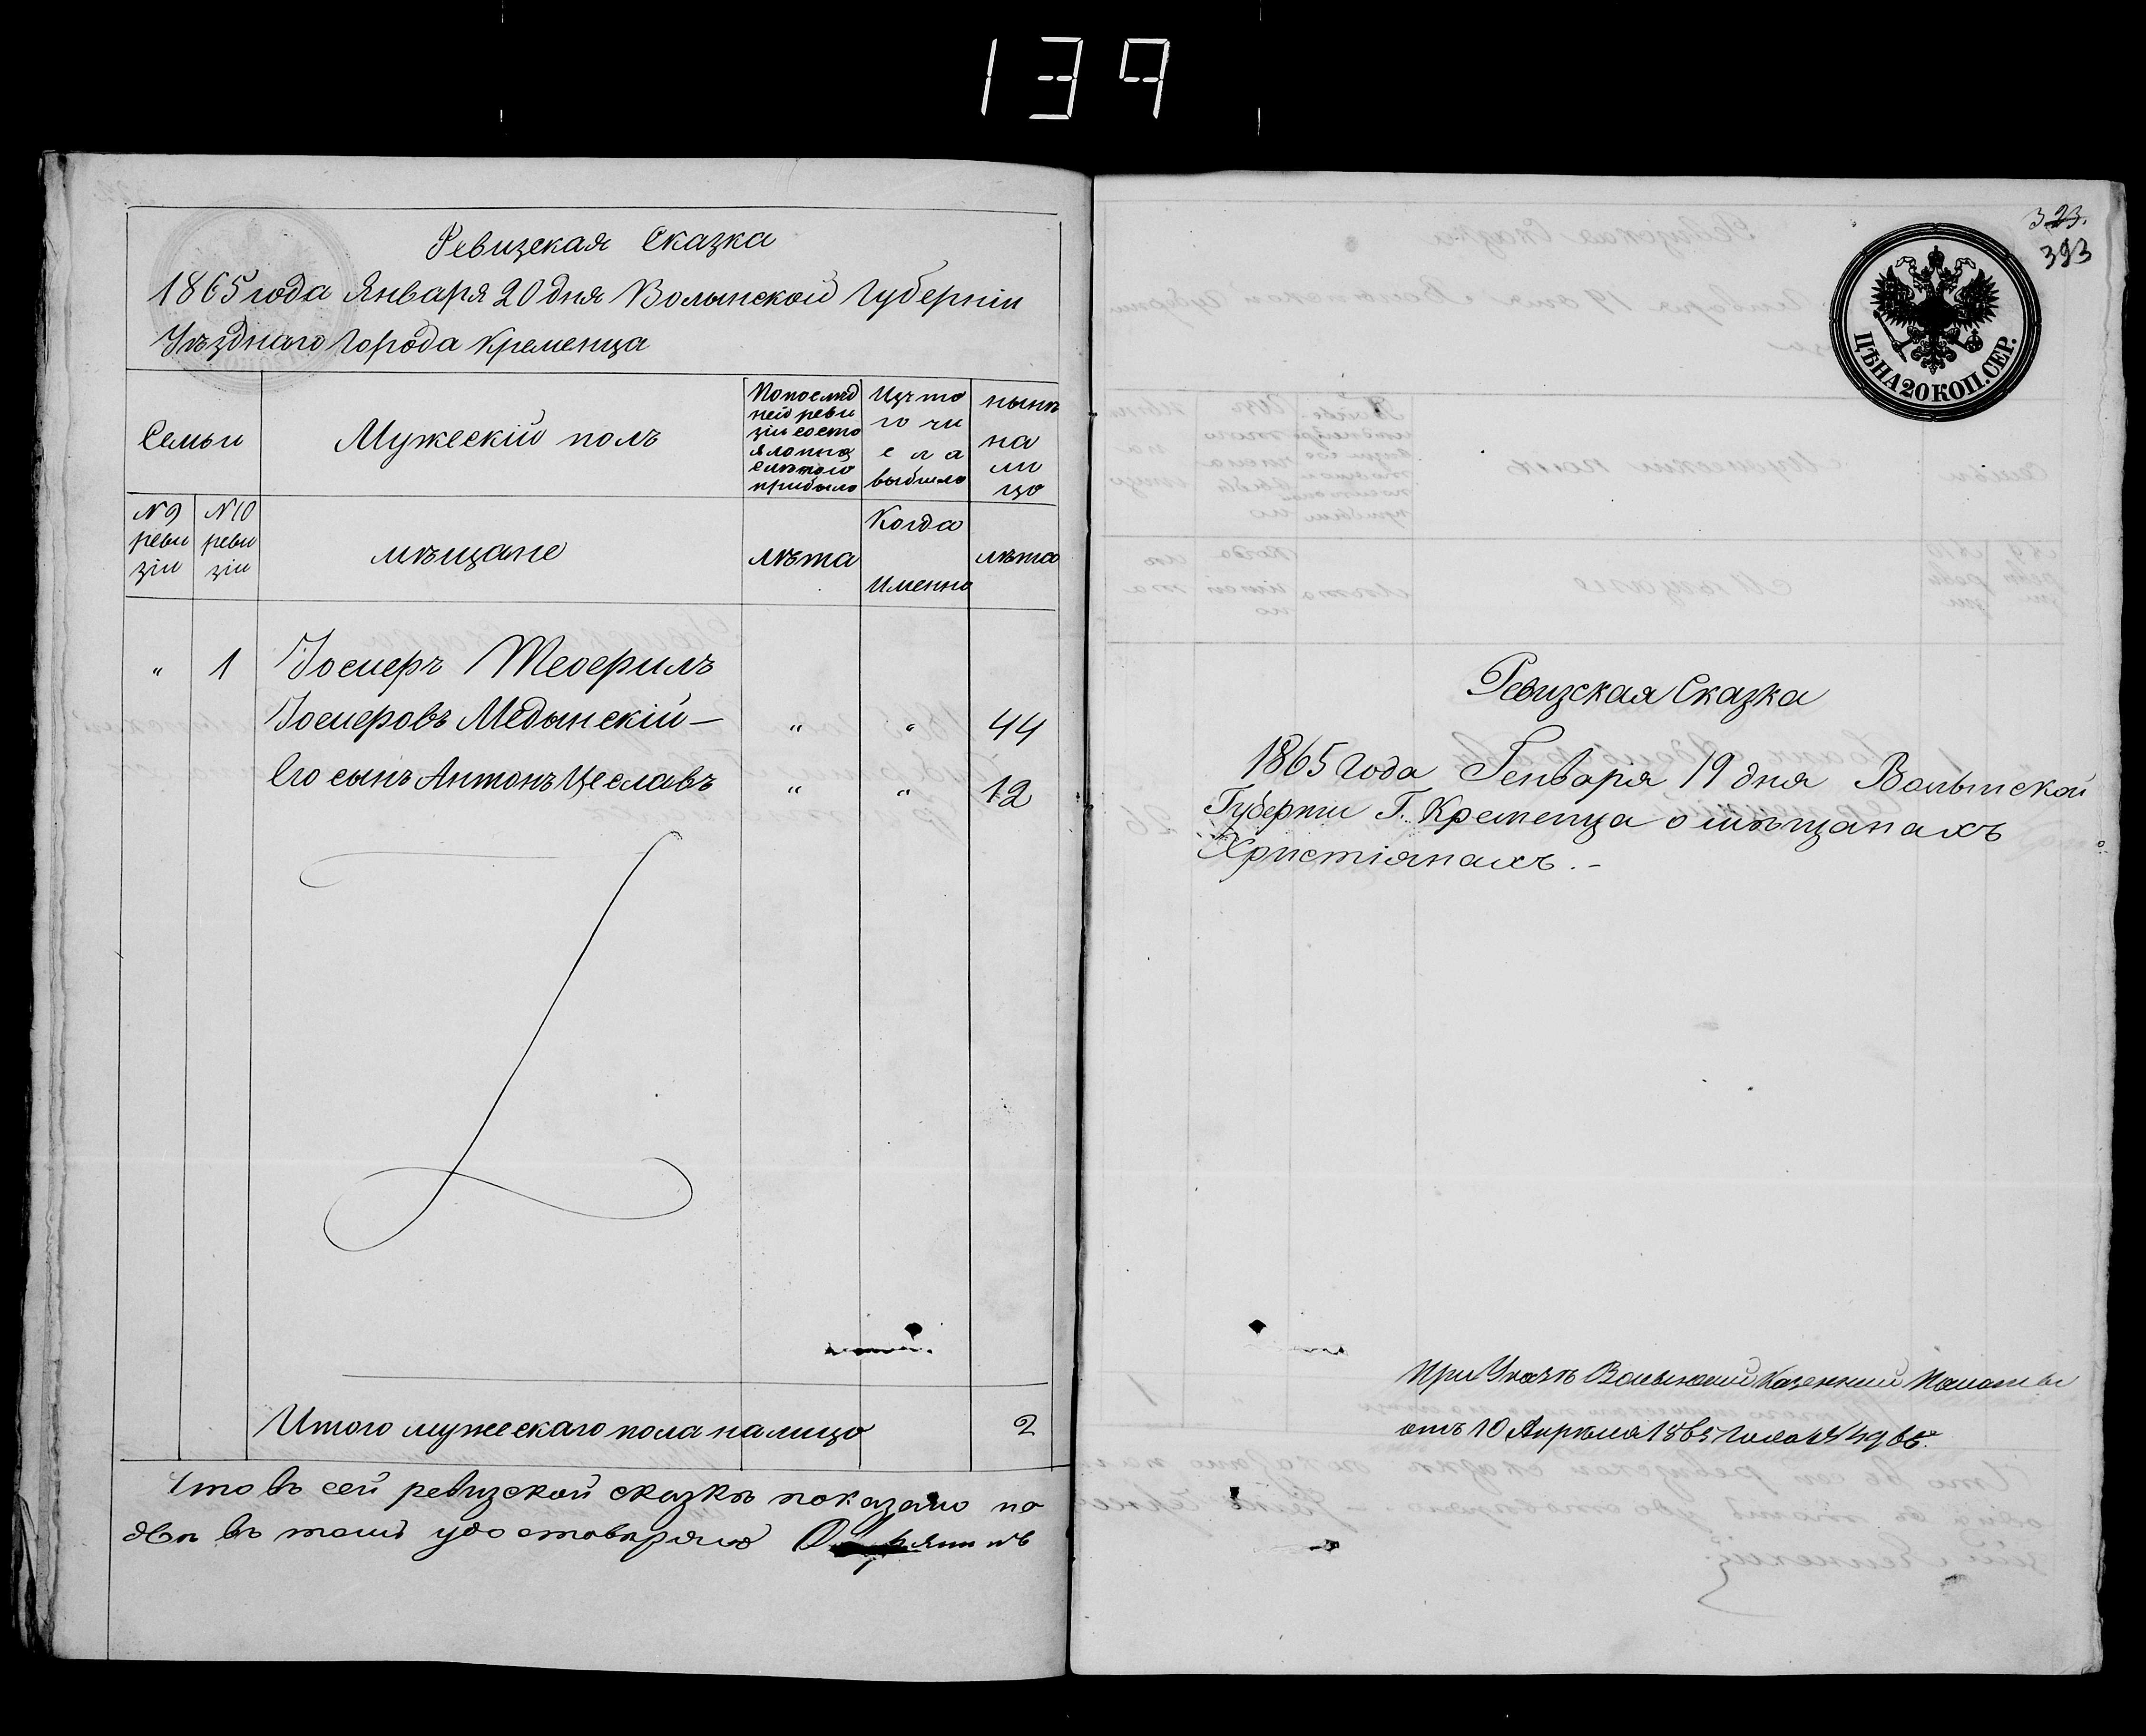 139
Ревизская Сказка
1865 года Января 20 дня Волынской Губерніи
Уѣзднаго Города Кременца
Семьи
Мужескій полъ
По послѣд
ней реви
зіи состо
яло или
послѣ того
прибыло
Изъ то
го чи
сла
выбыло
нынѣ
на
ли
цо
№ 9
реви
зіи
№ 10
реви
зіи
мѣщане
лѣта
Когда
Именно
лѣта
" 1 Іосифъ
Медынскій — " " 44
Его сынъ Антонъ Цеславъ " " 12
Итого мужескаго пола налицо 2
Что въ сей ревизской сказкѣ показано по
въ томъ удостовѣряю
323.
393
ЦѢНА 20 КОП. СЕР.
Ревизская Сказка
1865 года Генваря 19 дня Волынской
Губерніи Г. Кременца о мѣщанахъ
Христіянахъ. –
При Указѣ Волынской Казенной Палаты
отъ 10 Апрѣля 1865 года №